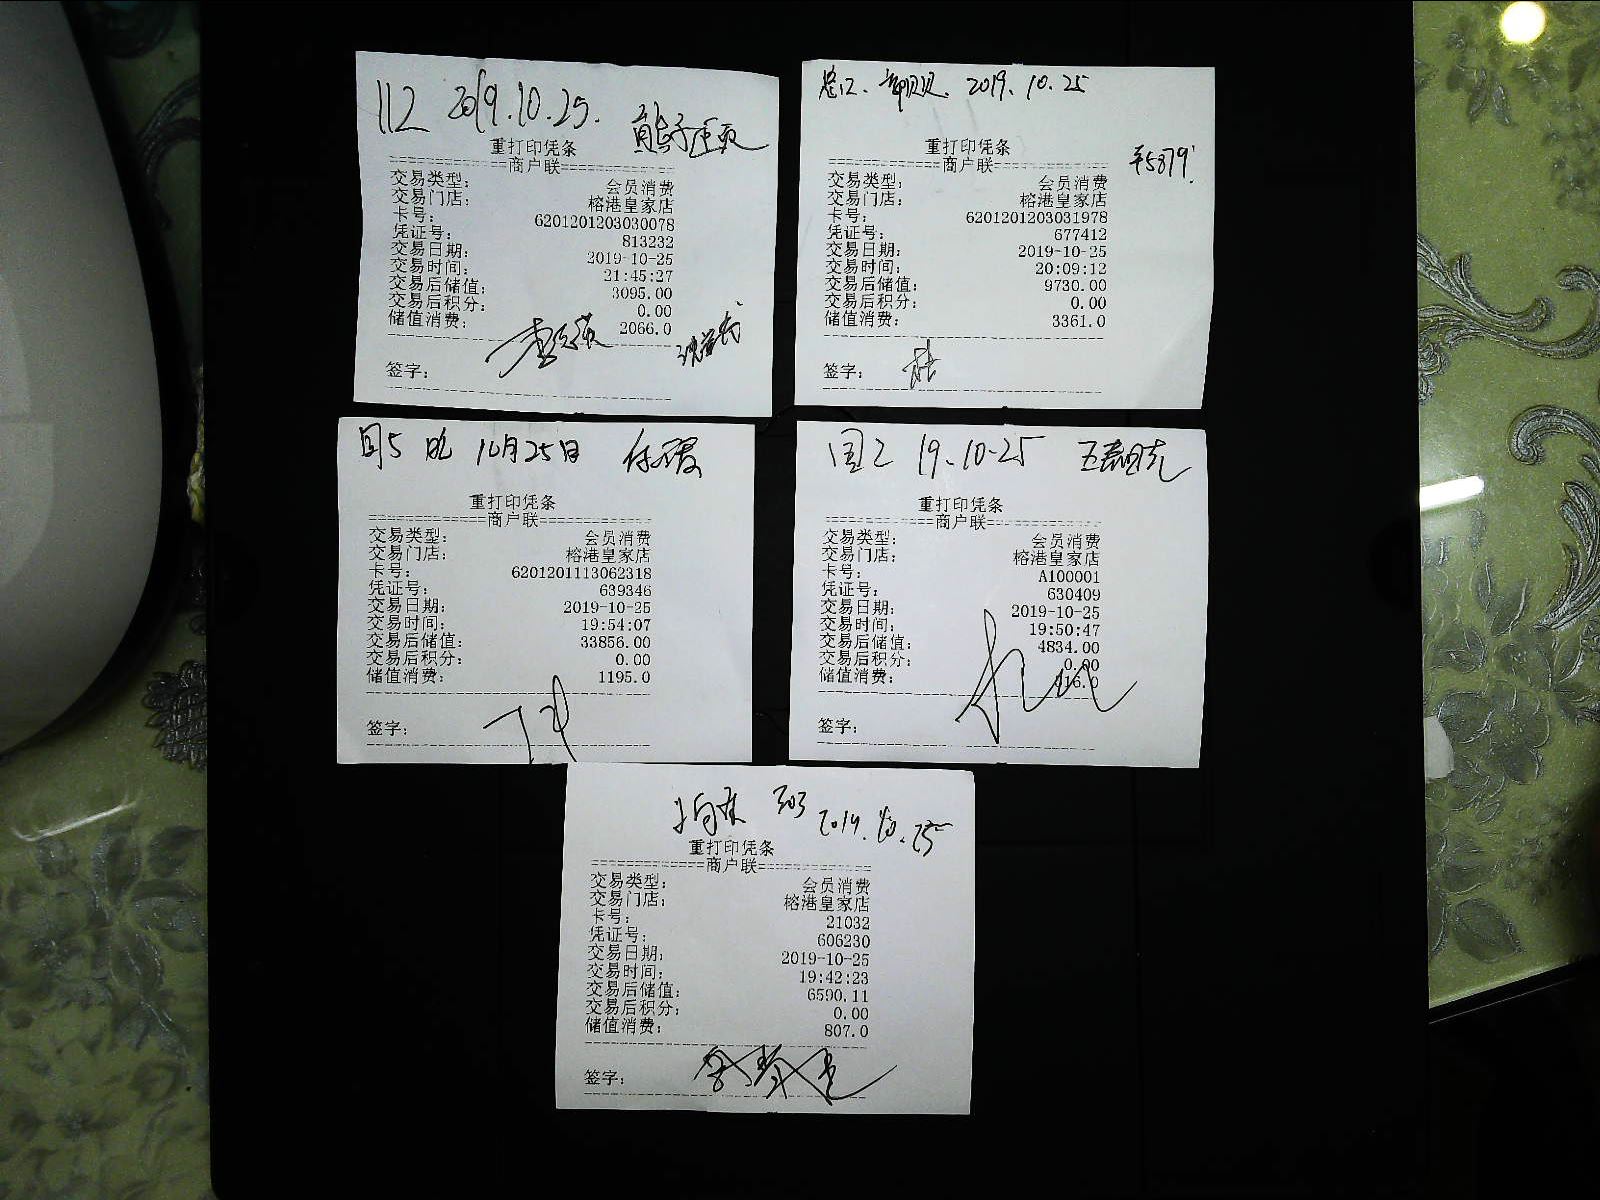 112 2019.10.25.
重打印凭条
==============商户联==============
交易类型: 会员消费
交易门店: 榕港皇家店
卡号: 6201201203030078
凭证号: 813232
交易日期: 2019-10-25
交易时间: 21:45:27
交易后储值: 3095.00
交易后积分: 0.00
储值消费: 2066.0
签字:
2019.10.25
重打印凭条
==============商户联==============
¥5879
交易类型: 会员消费
交易门店: 榕港皇家店
卡号: 6201201203031978
凭证号: 677412
交易日期: 2019-10-25
交易时间: 20:09:12
交易后储值: 9730.00
交易后积分: 0.00
储值消费: 3361.0
签字:
10月25日
重打印凭条
==============商户联==============
交易类型: 会员消费
交易门店: 榕港皇家店
卡号: 6201201113062318
凭证号: 639346
交易日期: 2019-10-25
交易时间: 19:54:07
交易后储值: 33856.00
交易后积分: 0.00
储值消费: 1195.0
签字:
19.10-25
重打印凭条
==============商户联==============
交易类型: 会员消费
交易门店: 榕港皇家店
卡号: A100001
凭证号: 630409
交易日期: 2019-10-25
交易时间: 19:50:47
交易后储值: 4834.00
交易后积分: 0.00
储值消费:
签字:
303 2019.10.25
重打印凭条
==============商户联==============
交易类型: 会员消费
交易门店: 榕港皇家店
卡号: 21032
凭证号: 606230
交易日期: 2019-10-25
交易时间: 19:42:23
交易后储值: 6590.11
交易后积分: 0.00
储值消费: 807.0
签字: